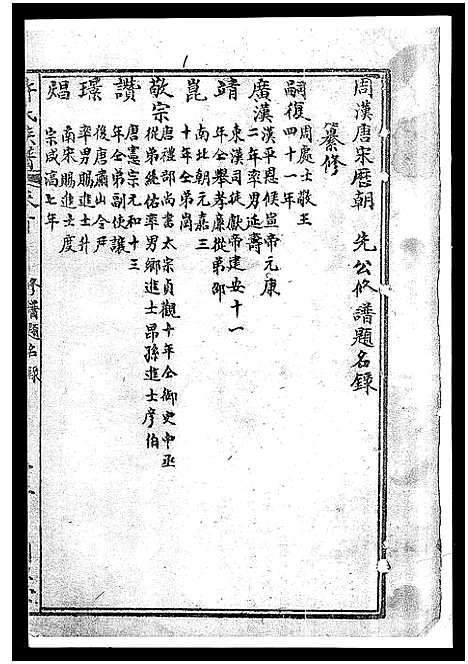 周漢唐宋歷朝 先公修譜題名錄
纂修
嗣復 周處士敬王四十一年
廣漢 漢平恩侯宣帝元康二年率男延壽
靖 東漢司徒獻帝建安十一年仝舉孝廉從弟邵
崑 南北朝元嘉三十年仝弟崗
敬宗 唐禮部尚書太宗貞觀十年仝御史中丞從弟繞佑率男鄉進士昂孫進士彥伯
讚 唐憲宗元和十三年仝弟副使讓
璟 後唐蕭山令尹率男賜進士升
焻 南宋賜進士度宗咸淳七年
許氏族譜
修譜題名錄